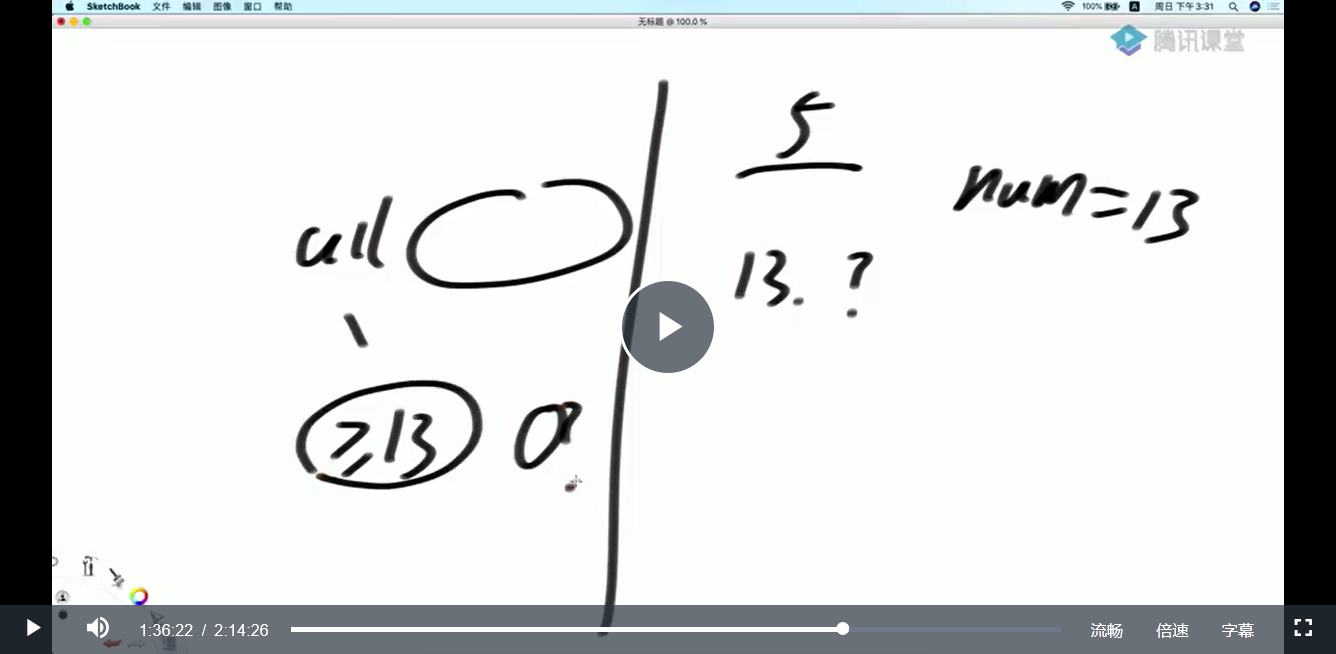 SketchBook 文件 编辑 图像 窗口 帮助 100% A 周日 下午3:31
无标题 @ 100.0 %
腾讯课堂
5
num=13
all
13. ?
≥13 0?
1:36:22 / 2:14:26 流畅 倍速 字幕